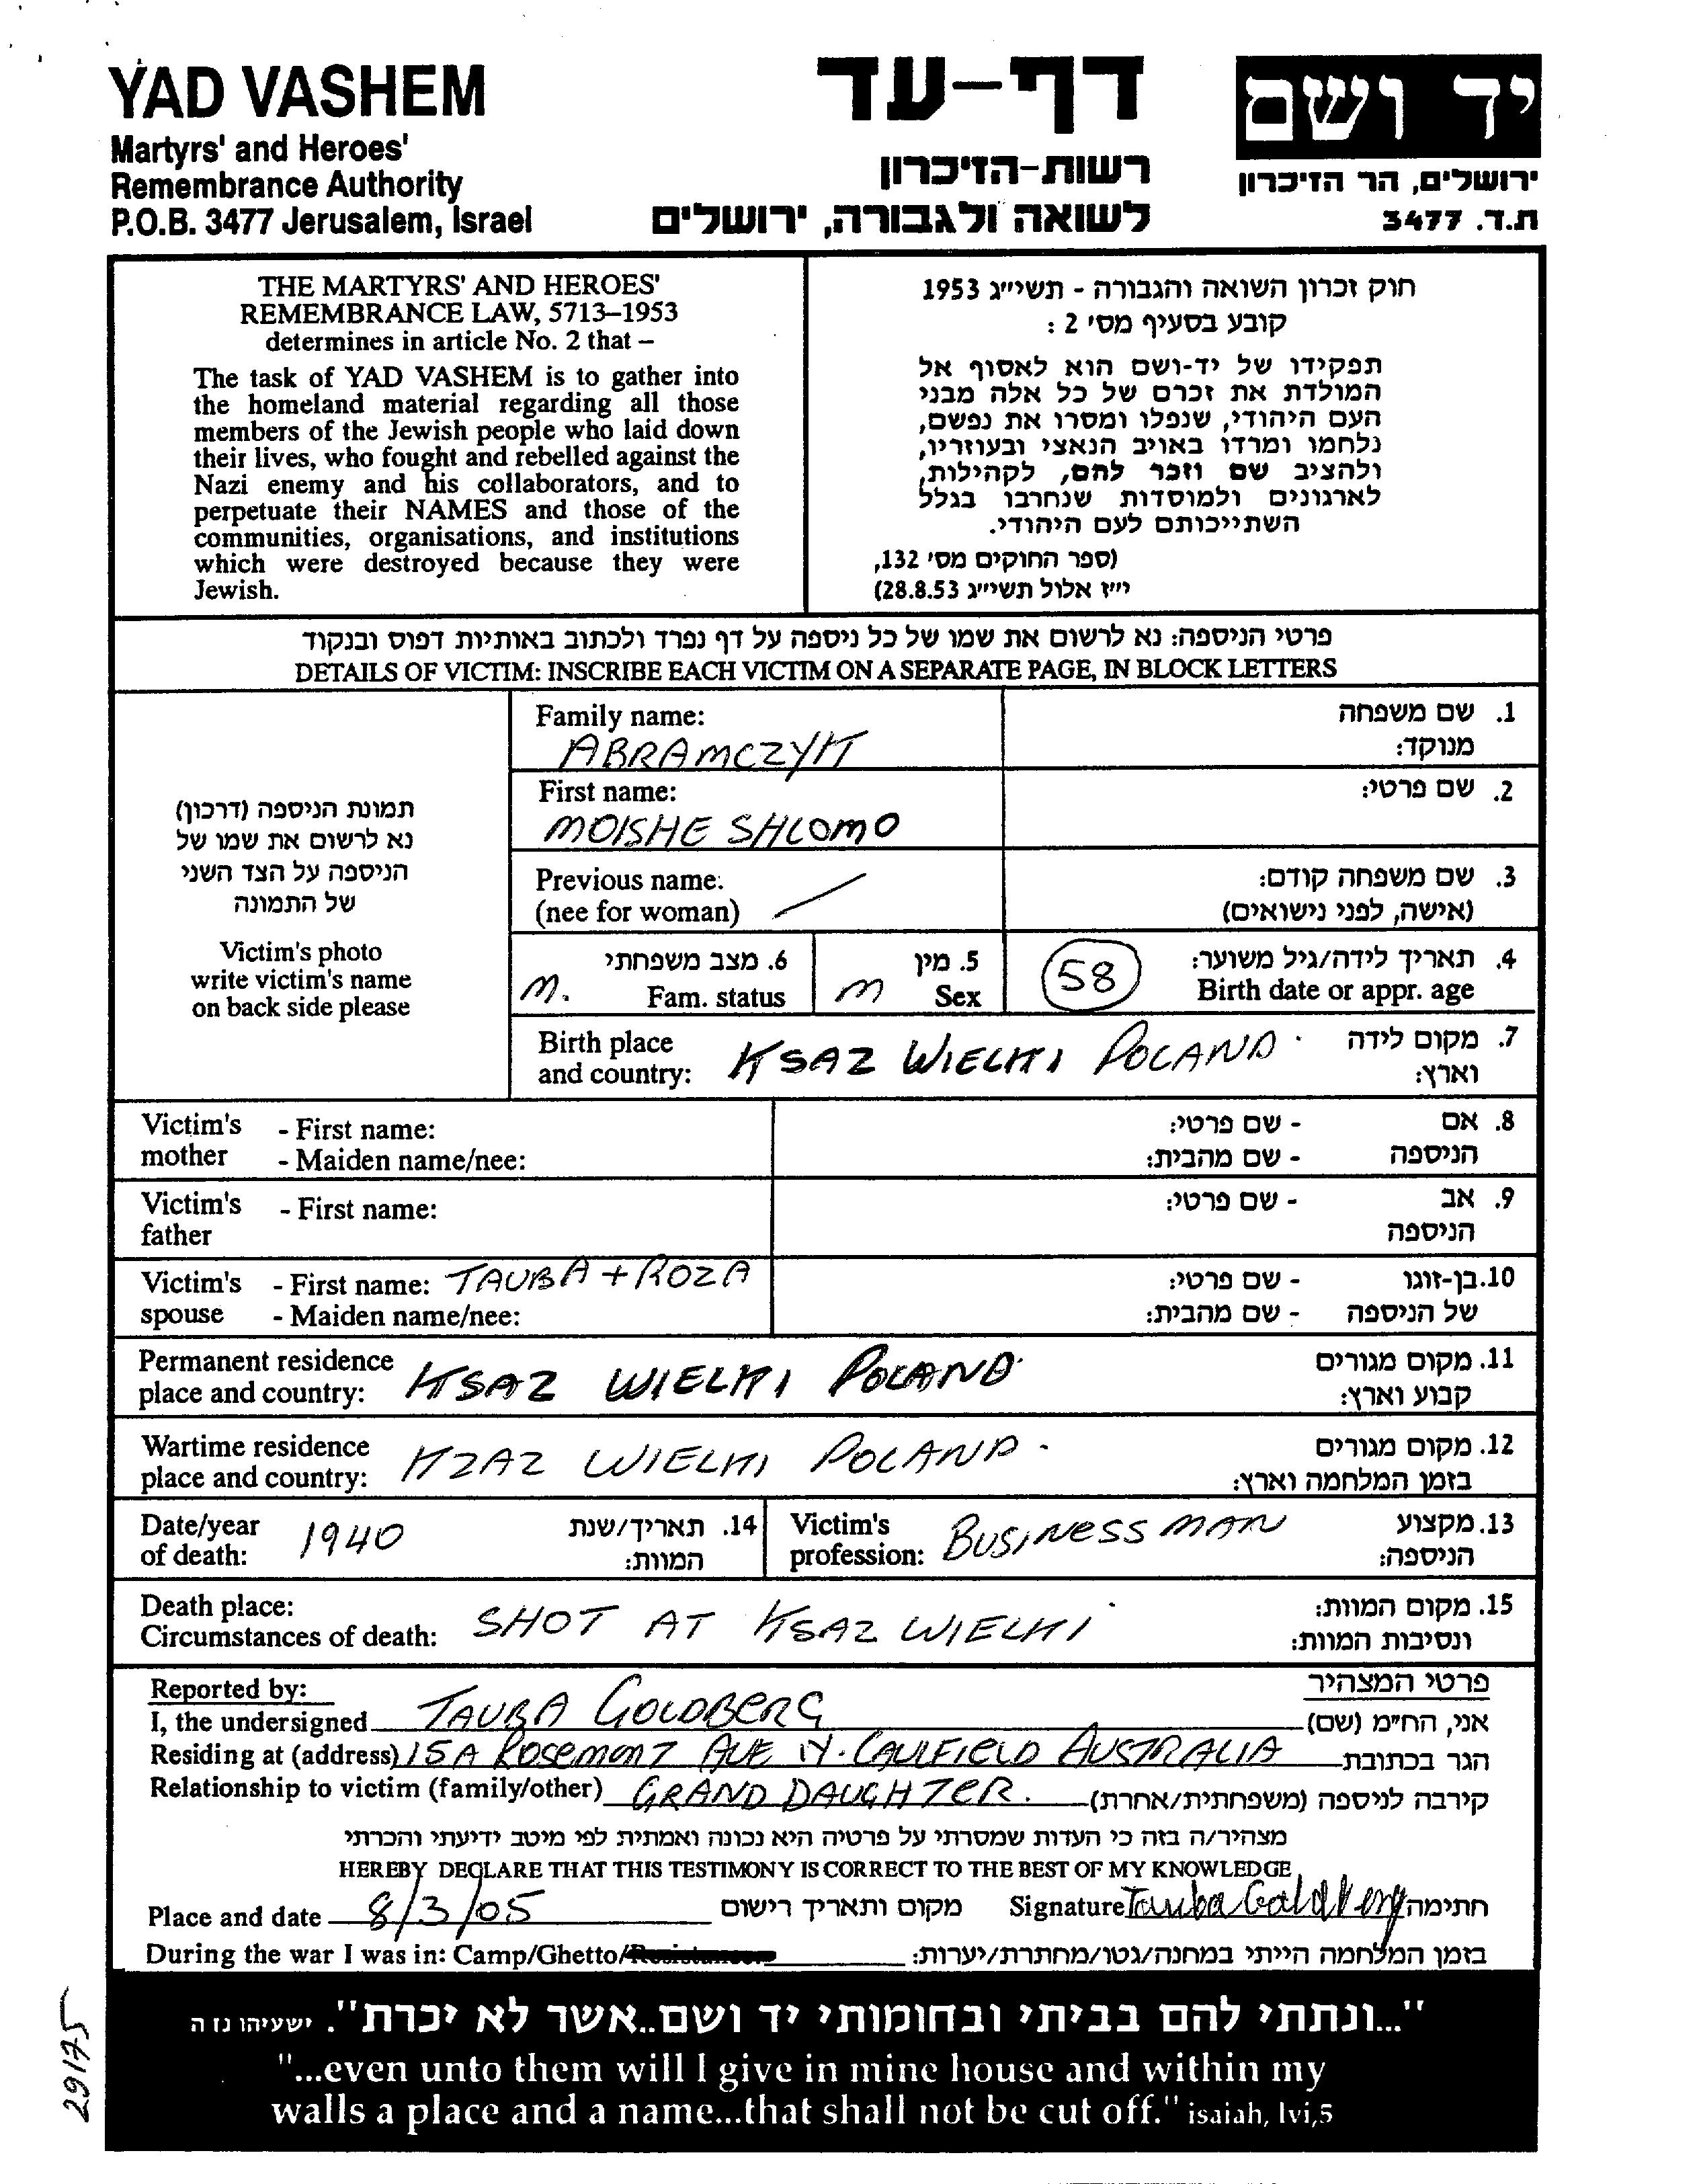 YAD VASHEM
Martyrs' and Heroes'
Remembrance Authority
P.O.B. 3477 Jerusalem, Israel
דף-עד
רשות-הזיכרון
לשואה ולגבורה, ירושלים
יד ושם
ירושלים, הר הזיכרון
ת.ד. 3477
THE MARTYRS' AND HEROES'
REMEMBRANCE LAW, 5713–1953
determines in article No. 2 that –
The task of YAD VASHEM is to gather into
the homeland material regarding all those
members of the Jewish people who laid down
their lives, who fought and rebelled against the
Nazi enemy and his collaborators, and to
perpetuate their NAMES and those of the
communities, organisations, and institutions
which were destroyed because they were
Jewish.
חוק זכרון השואה והגבורה - תשי״ג 1953
קובע בסעיף מס' 2 :
תפקידו של יד-ושם הוא לאסוף אל
המולדת את זכרם של כל אלה מבני
העם היהודי, שנפלו ומסרו את נפשם,
נלחמו ומרדו באויב הנאצי ובעוזריו,
ולהציב שם וזכר להם, לקהילות,
לארגונים ולמוסדות שנחרבו בגלל
השתייכותם לעם היהודי.
(ספר החוקים מס' 132,
י״ז אלול תשי״ג 28.8.53)
פרטי הניספה: נא לרשום את שמו של כל ניספה על דף נפרד ולכתוב באותיות דפוס ובנקוד
DETAILS OF VICTIM: INSCRIBE EACH VICTIM ON A SEPARATE PAGE, IN BLOCK LETTERS
תמונת הניספה (דרכון)
נא לרשום את שמו של
הניספה על הצד השני
של התמונה
Victim's photo
write victim's name
on back side please
Family name: 1. שם משפחה
ABRAMCZYK מנוקד:
First name: 2. שם פרטי:
MOISHE SHLOMO
Previous name: 3. שם משפחה קודם:
(nee for woman) (אישה, לפני נישואים)
6. מצב משפחתי 5. מין 4. תאריך לידה/גיל משוער:
M. Fam. status M Sex 58 Birth date or appr. age
Birth place 7. מקום לידה
and country: KSAZ WIELKI POLAND. וארץ:
Victim's - First name: - שם פרטי: 8. אם
mother - Maiden name/nee: - שם מהבית: הניספה
Victim's - First name: - שם פרטי: 9. אב
father הניספה
Victim's - First name: TAUBA + ROZA - שם פרטי: 10. בן-זוגו
spouse - Maiden name/nee: - שם מהבית: של הניספה
Permanent residence 11. מקום מגורים
place and country: KSAZ WIELKI POLAND. קבוע וארץ:
Wartime residence 12. מקום מגורים
place and country: KZAZ WIELKI POLAND. בזמן המלחמה וארץ:
Date/year 1940 14. תאריך/שנת Victim's BUSINESS MAN 13. מקצוע
of death: המוות: profession: הניספה:
Death place: 15. מקום המוות:
Circumstances of death: SHOT AT KSAZ WIELKI ונסיבות המוות:
Reported by: פרטי המצהיר
I, the undersigned TAUBA GOLDBERG אני, הח״מ (שם)
Residing at (address) 15A ROSEMONT AVE N. CAULFIELD AUSTRALIA הגר בכתובת
Relationship to victim (family/other) GRAND DAUGHTER. קירבה לניספה (משפחתית/אחרת)
מצהיר/ה בזה כי העדות שמסרתי על פרטיה היא נכונה ואמתית לפי מיטב ידיעתי והכרתי
HEREBY DECLARE THAT THIS TESTIMONY IS CORRECT TO THE BEST OF MY KNOWLEDGE
Place and date 8/3/05 מקום ותאריך רישום Signature Tauba Goldberg חתימה
During the war I was in: Camp/Ghetto/ בזמן המלחמה הייתי במחנה/גטו/מחתרת/יערות:
"...ונתתי להם בביתי ובחומותי יד ושם..אשר לא יכרת". ישעיהו נז ה
"...even unto them will I give in mine house and within my
walls a place and a name...that shall not be cut off." isaiah, lvi,5
29175